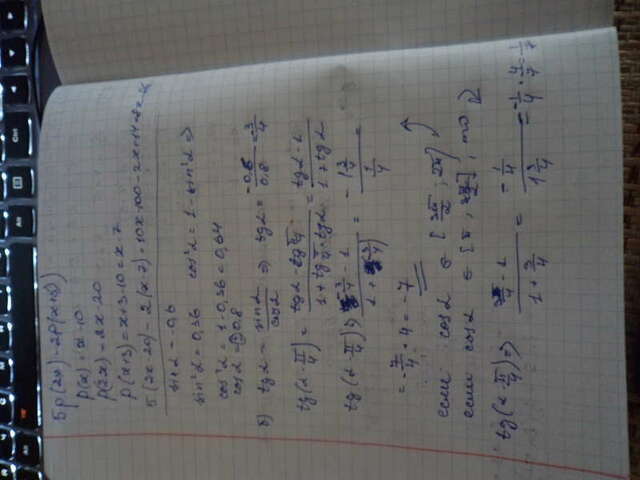 5p(2x)-2p(x+3)
p(x)=x-10
p(2x)=2x-20
p(x+3)=x+3-10=x-7
5(2x-20)-2(x-7)=10x-100-2x+14=8x-86
sin α = -0,6
sin²α = 0,36 cos²α = 1-sin²α ⇒
cos²α = 1-0,36 = 0,64
cos α = ±0,8
tg α = sin α / cos α ⇒ tg α = -0,6/0,8 = -3/4
tg(α-π/4) = (tg α - tg π/4)/(1+tg π/4·tg α) = (tg α - 1)/(1+tg α)
tg(α-π/4) ⇒ (-3/4 - 1)/(1+(-3/4)) = (-1 3/4)/(1/4) =
= -7/4·4 = -7
если cos α ∈ [3π/2; 2π]
если cos α ∈ [π; 3π/2], то
tg(α-π/4) ⇒ (3/4 - 1)/(1+3/4) = (-1/4)/(1 3/4) = -1/4·4/7 = -1/7